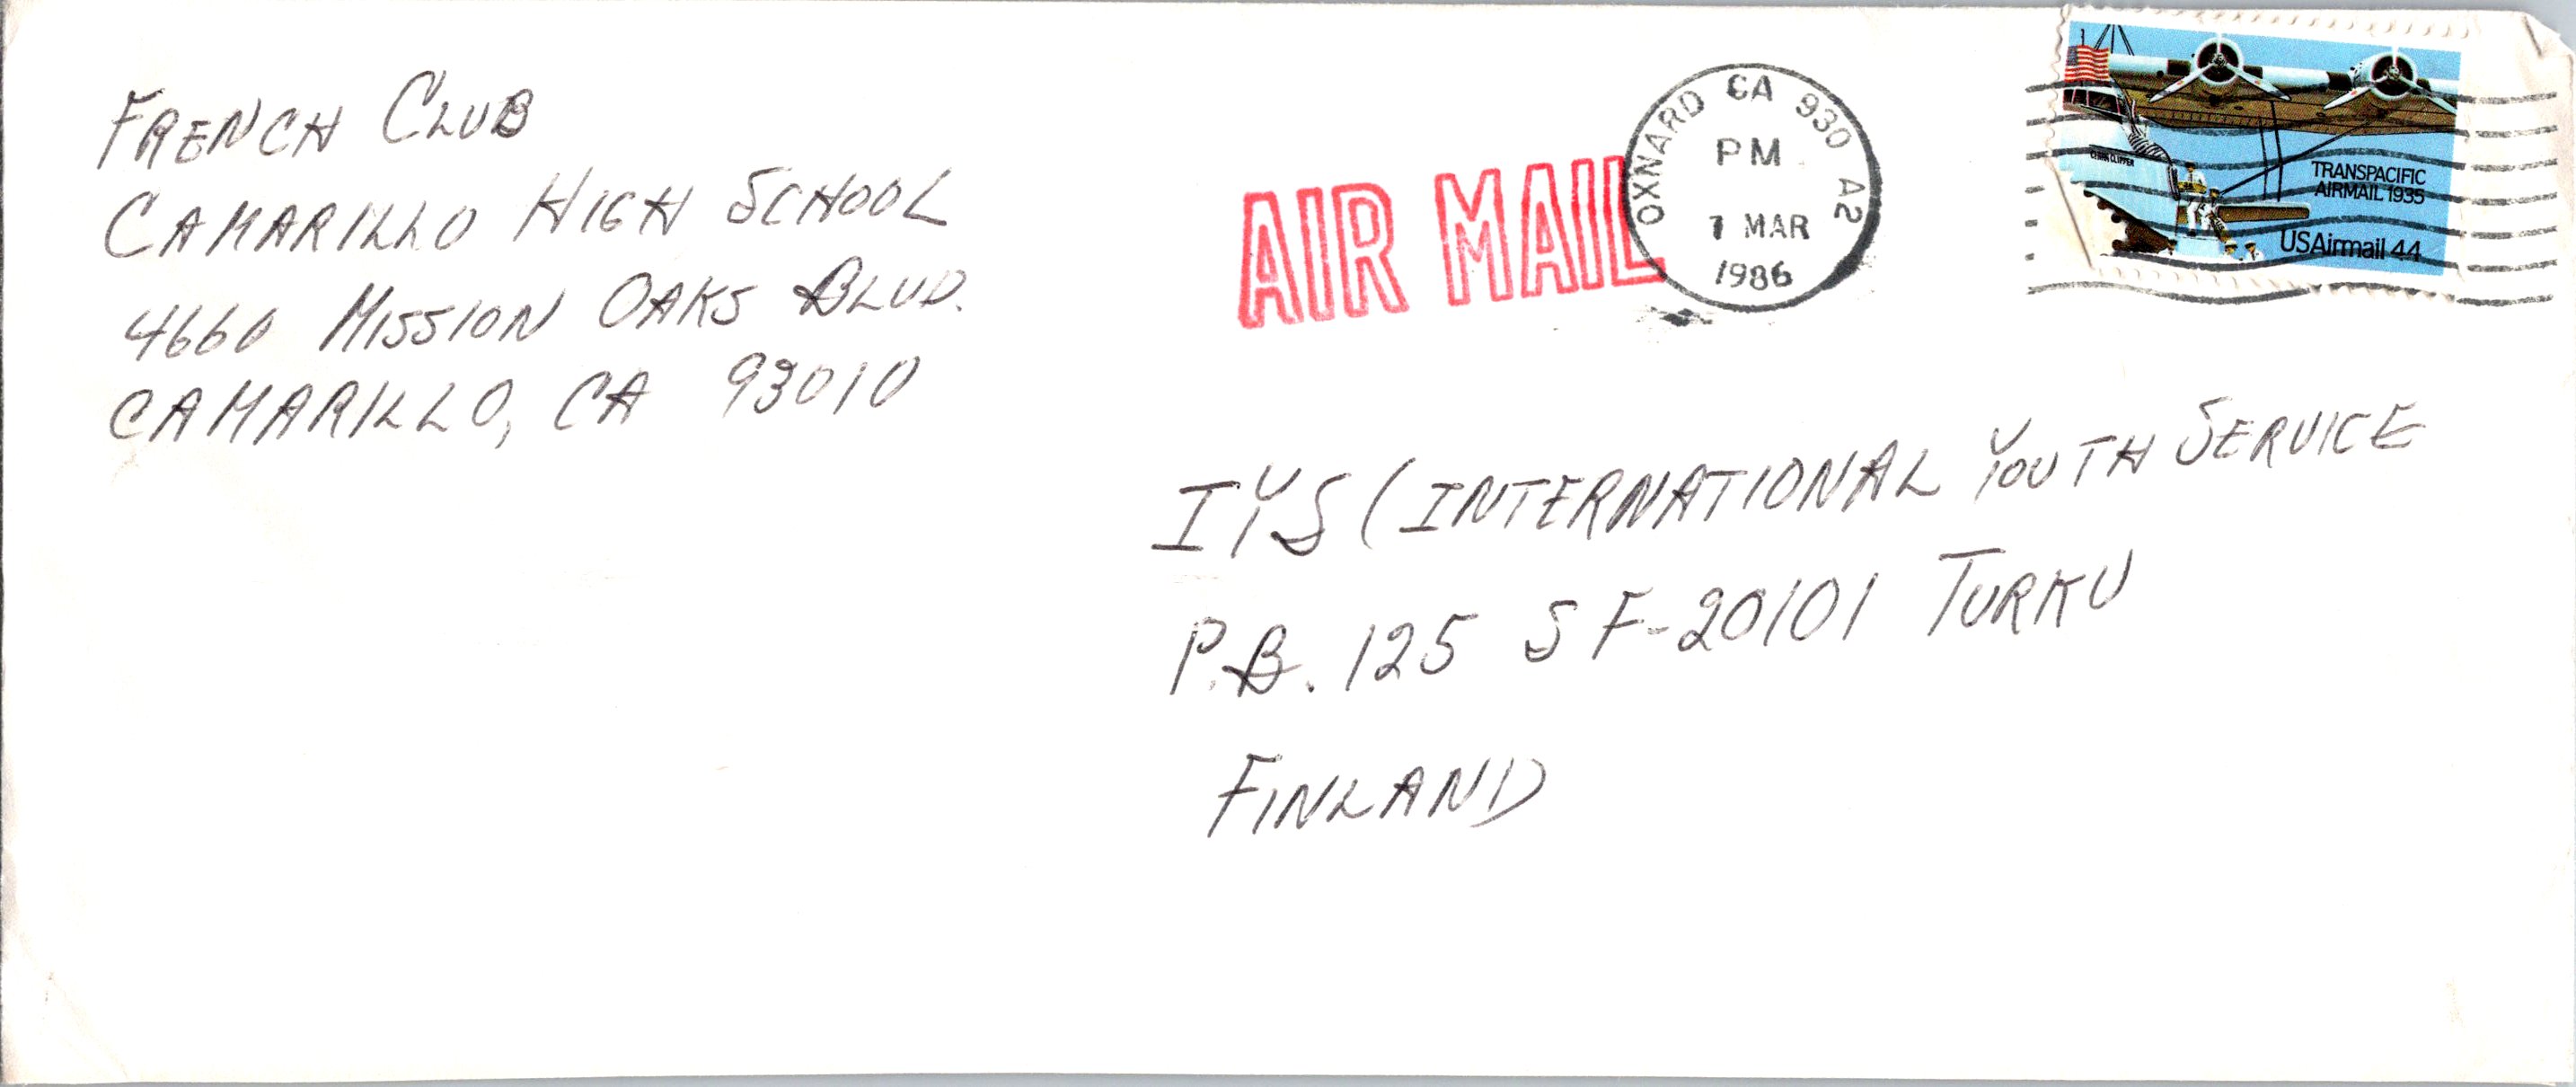 FRENCH CLUB
CAMARILLO HIGH SCHOOL
4660 MISSION OAKS BLVD.
CAMARILLO, CA 93010
AIR MAIL
OXNARD CA 930 A2
PM
7 MAR
1986
CHINA CLIPPER
TRANSPACIFIC
AIRMAIL 1935
USAirmail 44
IYS (INTERNATIONAL YOUTH SERVICE
P.B. 125 SF-20101 TURKU
FINLAND